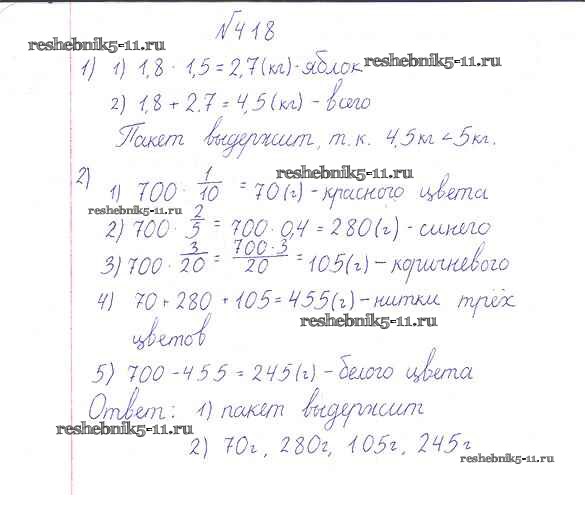 №418
reshebnik5-11.ru
1) 1) 1,8 · 1,5 = 2,7 (кг) - яблок
reshebnik5-11.ru
2) 1,8 + 2.7 = 4,5 (кг) - всего
Пакет выдержит, т.к. 4,5кг < 5кг.
reshebnik5-11.ru
2) 1) 700 · 1/10 = 70 (г) - красного цвета
reshebnik5-11.ru
2) 700 · 2/5 = 700 · 0,4 = 280 (г) - синего
3) 700 · 3/20 = 700·3/20 = 105 (г) - коричневого
4) 70 + 280 + 105 = 455 (г) - нитки трёх
reshebnik5-11.ru
цветов
5) 700 - 455 = 245 (г) - белого цвета
Ответ: 1) пакет выдержит
reshebnik5-11.ru
2) 70г, 280г, 105г, 245г
reshebnik5-11.ru